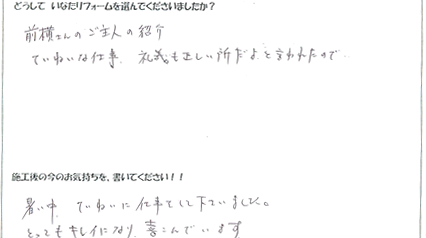 どうして いなたリフォームを選んでくださいましたか？
前横さんのご主人の紹介
ていねいな仕事、礼義も正しい所だよと言われたので
施工後の今のお気持ちを、書いてください！！
暑い中、ていねいに仕事をして下さいました。
とってもキレイになり、喜こんでいます